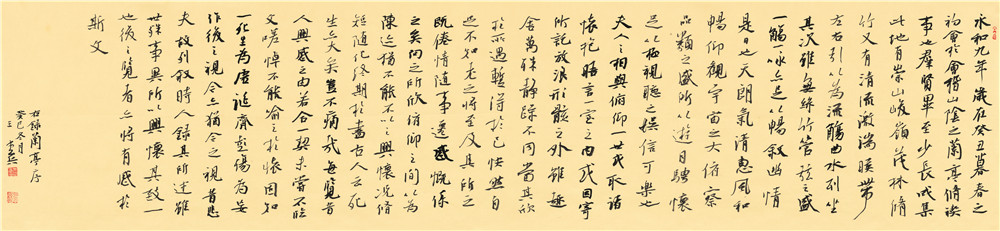 永和九年歲在癸丑暮春之
初會於會稽山陰之蘭亭脩禊
事也群賢畢至少長咸集
此地有崇山峻嶺茂林脩
竹又有清流激湍暎帶
左右引以為流觴曲水列坐
其次雖無絲竹管弦之盛
一觴一詠亦足以暢敘幽情
是日也天朗氣清惠風和
暢仰觀宇宙之大俯察
品類之盛所以遊目騁懷
足以極視聽之娛信可樂也
夫人之相與俯仰一世或取諸
懷抱晤言一室之內或因寄
所託放浪形骸之外雖趣
舍萬殊靜躁不同當其欣
於所遇暫得於己快然自
足不知老之將至及其所之
既倦情隨事遷感慨係
之矣向之所欣俯仰之間以為
陳迹猶不能不以之興懷況脩
短隨化終期於盡古人云死
生亦大矣豈不痛哉每覽昔
人興感之由若合一契未嘗不臨
文嗟悼不能喻之於懷固知
一死生為虛誕齊彭殤為妄
作後之視今亦猶今之視昔悲
夫故列敘時人錄其所述雖
世殊事異所以興懷其致一
也後之覽者亦將有感於
斯文
右錄蘭亭序
癸巳冬月